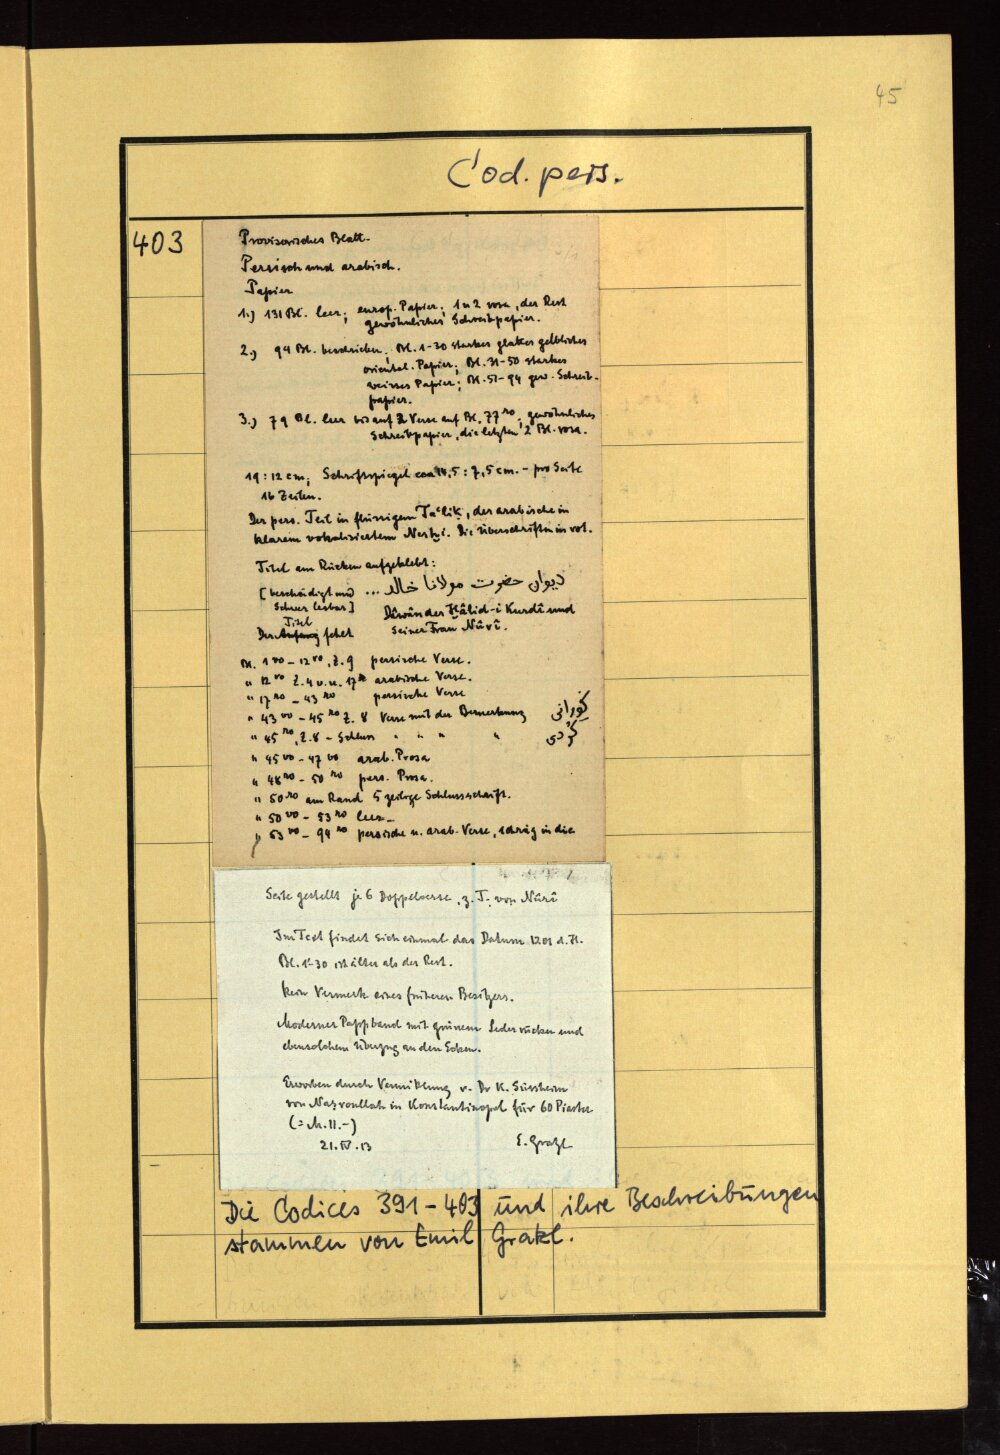 45
Cod. pers.
403
Provisorisches Blatt.
Persisch und arabisch.
Papier
1.) 131 Bl. leer; europ. Papier; 1 u 2 rosa, der Rest
gewöhnliches Schreibpapier.
2.) 94 Bl. beschrieben; Bl. 1-30 starkes glattes gelbliches
oriental. Papier; Bl. 31-50 starkes
weisses Papier; Bl. 51-94 gew. Schreib-
papier.
3.) 79 Bl. leer bis auf 2 Verse auf Bl. 77 ro; gewöhnliches
Schreibpapier, die letzten 2 Bl. rosa.
19:12 cm; Schriftspiegel ca 14,5:7,5 cm. - pro Seite
16 Zeilen.
Der pers. Teil in flüssigem Ta'lik, der arabische in
klarem vokalisiertem Neskhi. Die Überschriften in rot.
Titel am Rücken aufgeklebt:
[beschädigt und ... ديوان حضرت مولانا خالد
schwer lesbar] Dîwân des Hâlid-i Kurdî und
Titel seiner Frau Nûrî.
Der Anfang fehlt
Bl. 1 vo - 12 vo, Z. 9 persische Verse.
" 12 vo Z. 4 v. u. 17 ro arabische Verse.
" 17 ro - 43 ro persische Verse
" 43 vo - 45 ro Z. 8 Verse mit der Bemerkung گورانى
" 45 ro, Z. 8 - Schluss " " " " كردى
" 45 vo - 47 vo arab. Prosa
" 48 ro - 50 ro pers. Prosa.
" 50 ro am Rand 5 zeilige Schlussschrift.
" 50 vo - 53 ro leer -
" 53 vo - 94 ro persische u. arab. Verse, schräg in die
Seite gestellt je 6 Doppelverse, z. T. von Nûrî
Im Text findet sich einmal das Datum 1201 d. H.
Bl. 1-30 ist älter als der Rest.
Kein Vermerk eines früheren Besitzers.
Moderner Pappband mit grünem Lederrücken und
ebensolchem Überzug an den Ecken.
Erworben durch Vermittlung v. Dr K. Süssheim
von Nasroullah in Konstantinopel für 60 Piaster
(= M. 11.-)
21. IV. 13 E. Gratzl
Die Codices 391-403 und ihre Beschreibungen
stammen von Emil Gratzl.